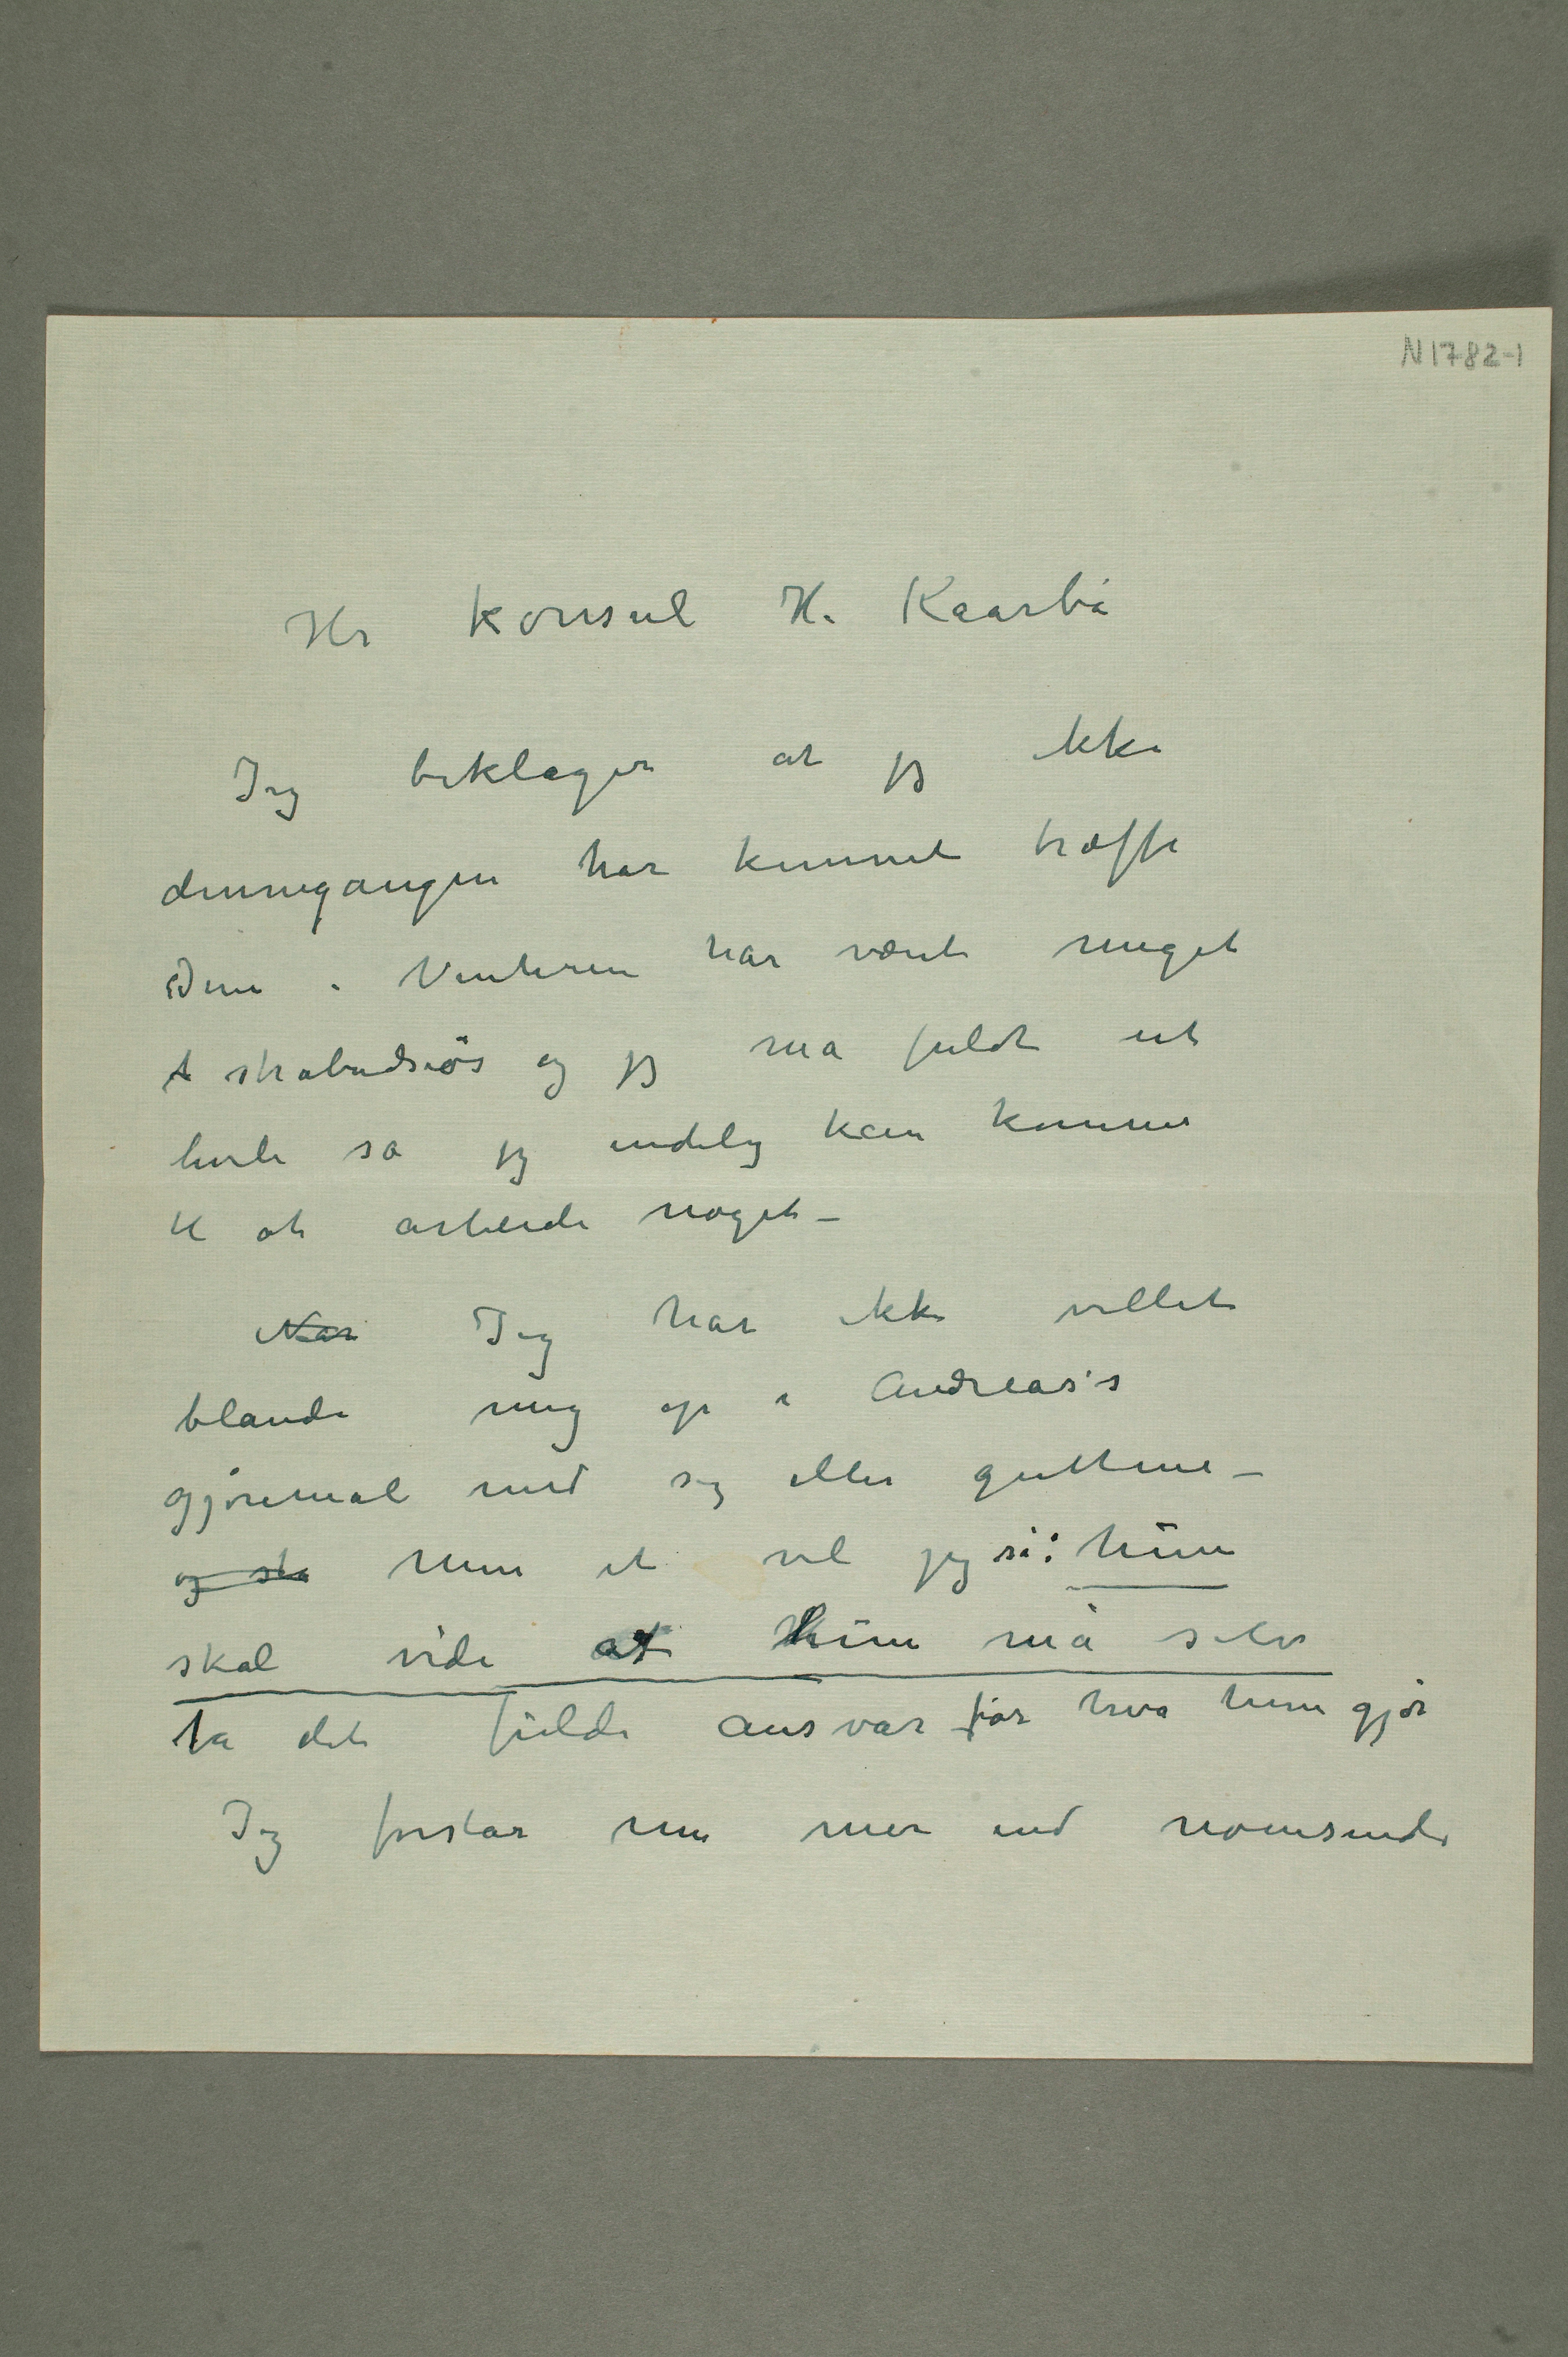 N 1782-1
Hr Konsul H. Kaarbø
Jeg beklager at jeg ikke
dennegangen har kunnet træffe
Dem . Vinteren har været meget
t strabadsiøs og jeg må fuldt ut
hvile så jeg endelig kan komme
til at arbeide noget –
Når Jeg har ikke villet
blande mig op i Andreas's
gjøremål med sig eller guttene –
og sta men et vil jeg si: hun
skal vide at hun må selv
ta det fulde ansvar for hva hun gjør
Jeg forstår nu mer end noensinde